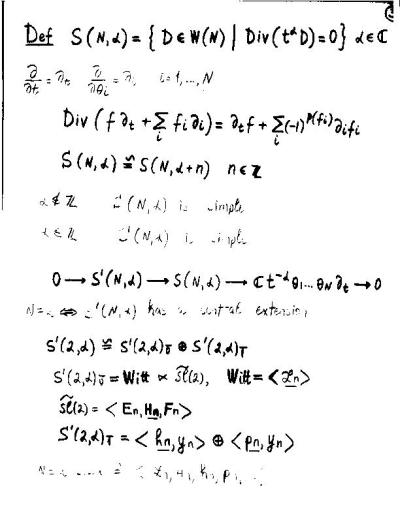 Def S(N,α) = { D ∈ W(N) | Div(t^α D) = 0 } α ∈ ℂ
∂/∂t = ∂t ∂/∂θi = ∂i i = 1, ..., N
Div (f∂t + Σi fi∂i) = ∂tf + Σi(-1)^p(fi) ∂ifi
S(N,α) ≅ S(N,α+n) n ∈ ℤ
α ∉ ℤ S'(N,α) is simple
α ∈ ℤ S'(N,α) is simple
0 → S'(N,α) → S(N,α) → ℂ t^-α θ1...θN ∂t → 0
N=2 ⇔ S'(N,α) has a central extension
S'(2,α) ≅ S'(2,α)0̄ ⊕ S'(2,α)1̄
S'(2,α)0̄ = Witt ⋉ s̃l(2), Witt = <ℒn>
s̃l(2) = < En, Hn, Fn >
S'(2,α)1̄ = < hn, yn > ⊕ < pn, yn >